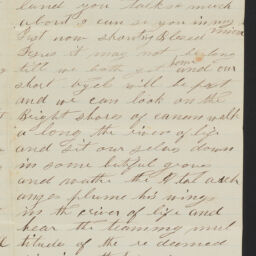 land you talk so much
about I can se you in my mind
Just now shouting Blessed
Jesus it may not be long
till we both get some and our
short toyel will be past
and we can look on the
Bright shores of canan walk
a long the river of life
and Sit our selves down
in some butiful grove
and wathe the Blol arch
angel plume his wings
in the river of life and
hear the teamming mul
titude of the re deemed